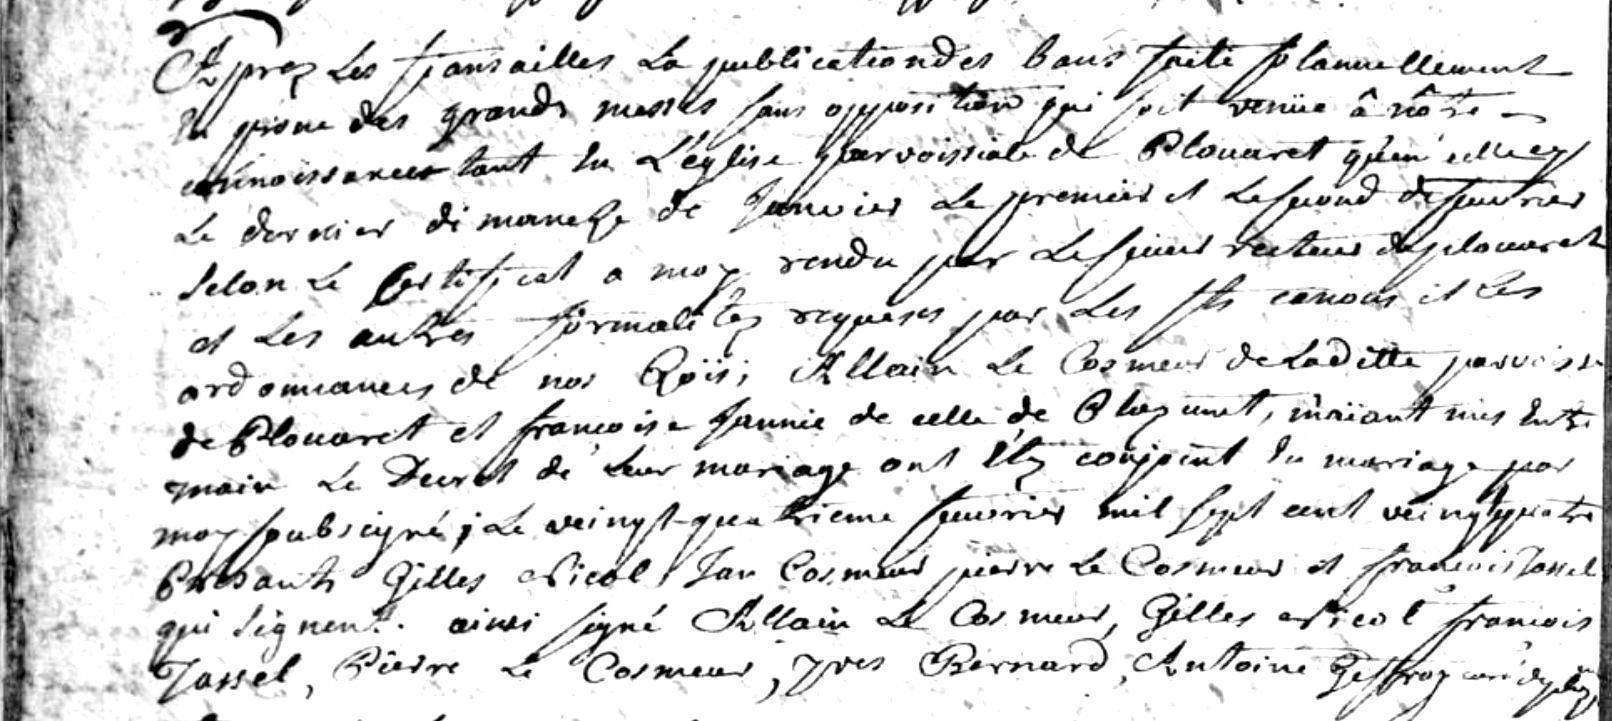 Aprez les fiansailles la publication des bans faite solamnellement
au prone des grands messes sans opposition qui soit venüe â nôtre
connoissances tant en L'église parroissiale de Plouaret qu'en celle cy
Le dernier dimanche de Janvier Le premier et Le second de feuvrier
selon Le Certificat a moy rendu par Le sieur recteur de plouaret
et Les autres formalitez requises par Les sts canons et Les
ordonnances de nos Rois, Allain Le Cosmeur de Laditte parroisse
de Plouaret et francoise Jannic de celle de Pluzunet, m'aiant mis entre
main Le Decret de Leur mariage ont étéz conjoint en mariage par
moy soubsigné; Le veingt-quatrieme feuvrier mil sept cent veingt quatre
Presants Gilles Nicol, Jan Cosmeur pierre Le Cosmeur et francois Jassel
qui signent. ainsi signé Allain Le Cosmeur, Gilles Nicol francois
Jassel, Pierre Le Cosmeur, yves Bernard, Antoine Geffroy curé